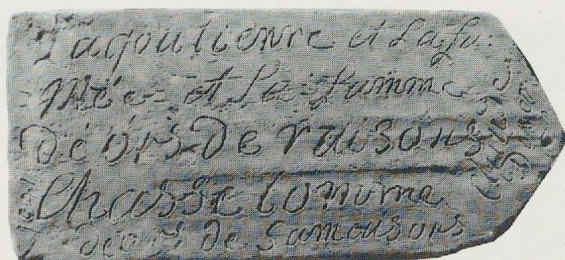 Lagoutienre et Lafu:
Mée et Le famme
déors De raisons
Chasse Lomme
déors de Samaisons